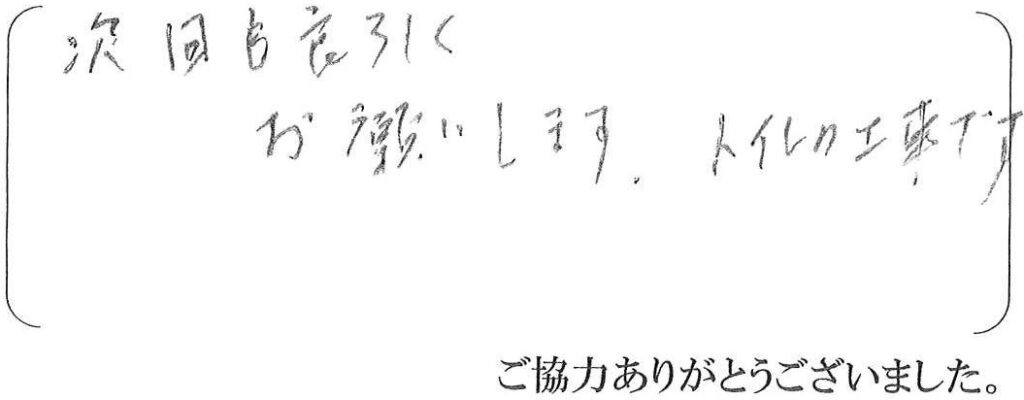 次回も良ろしく
お願いします。トイレの工事です
ご協力ありがとうございました。